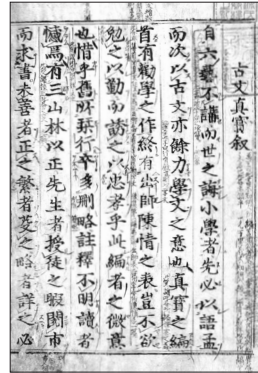 古文真寳叙
自六藝不講而世之誨小學者先必以語孟
而次以古文亦餘力學文之意也真寳之編
首有勸學之作終有出師陳情之表豈不欲
勉之以勤而勗之以忠孝乎此編者之微意
也惜乎舊所栞行率多刪略註釋不明讀者
憾焉有三山林以正先生者授徒之暇閱市
而求書未善者正之繁者芟之略者詳之必